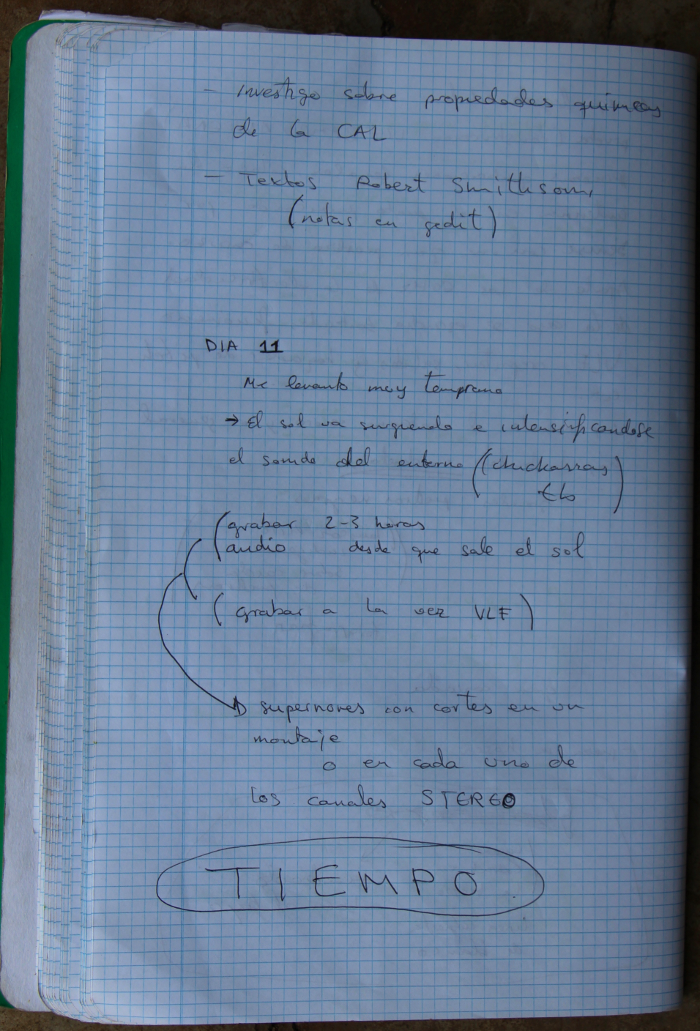 - Investigo sobre propiedades químicas
de la CAL
- Textos Robert Smithson,
(notas en gedit)
DIA 11
Me levanto muy temprano
→ El sol va surgiendo e intensificandose
el sonido del entorno (chicharras
etc)
(grabar 2-3 horas
audio desde que sale el sol
(grabar a la vez VLF)
superponer con cortes en un
montaje
o en cada uno de
los canales STEREO
TIEMPO